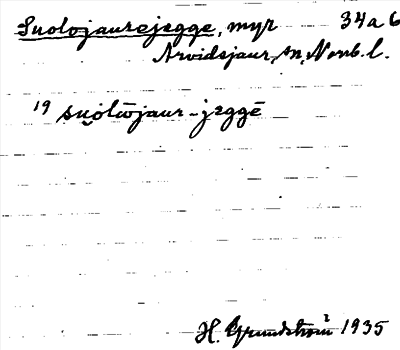 Suolojaurejegge, myr 34a6
Arvidsjaur, sn, Norrb. l.
19 su̯ólōjaur-jeggē
H. Grundström 1935